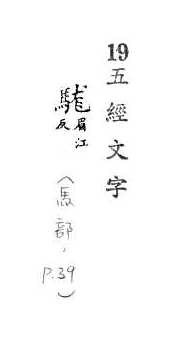 19五經文字
駹眉江反
（馬部，P.39）